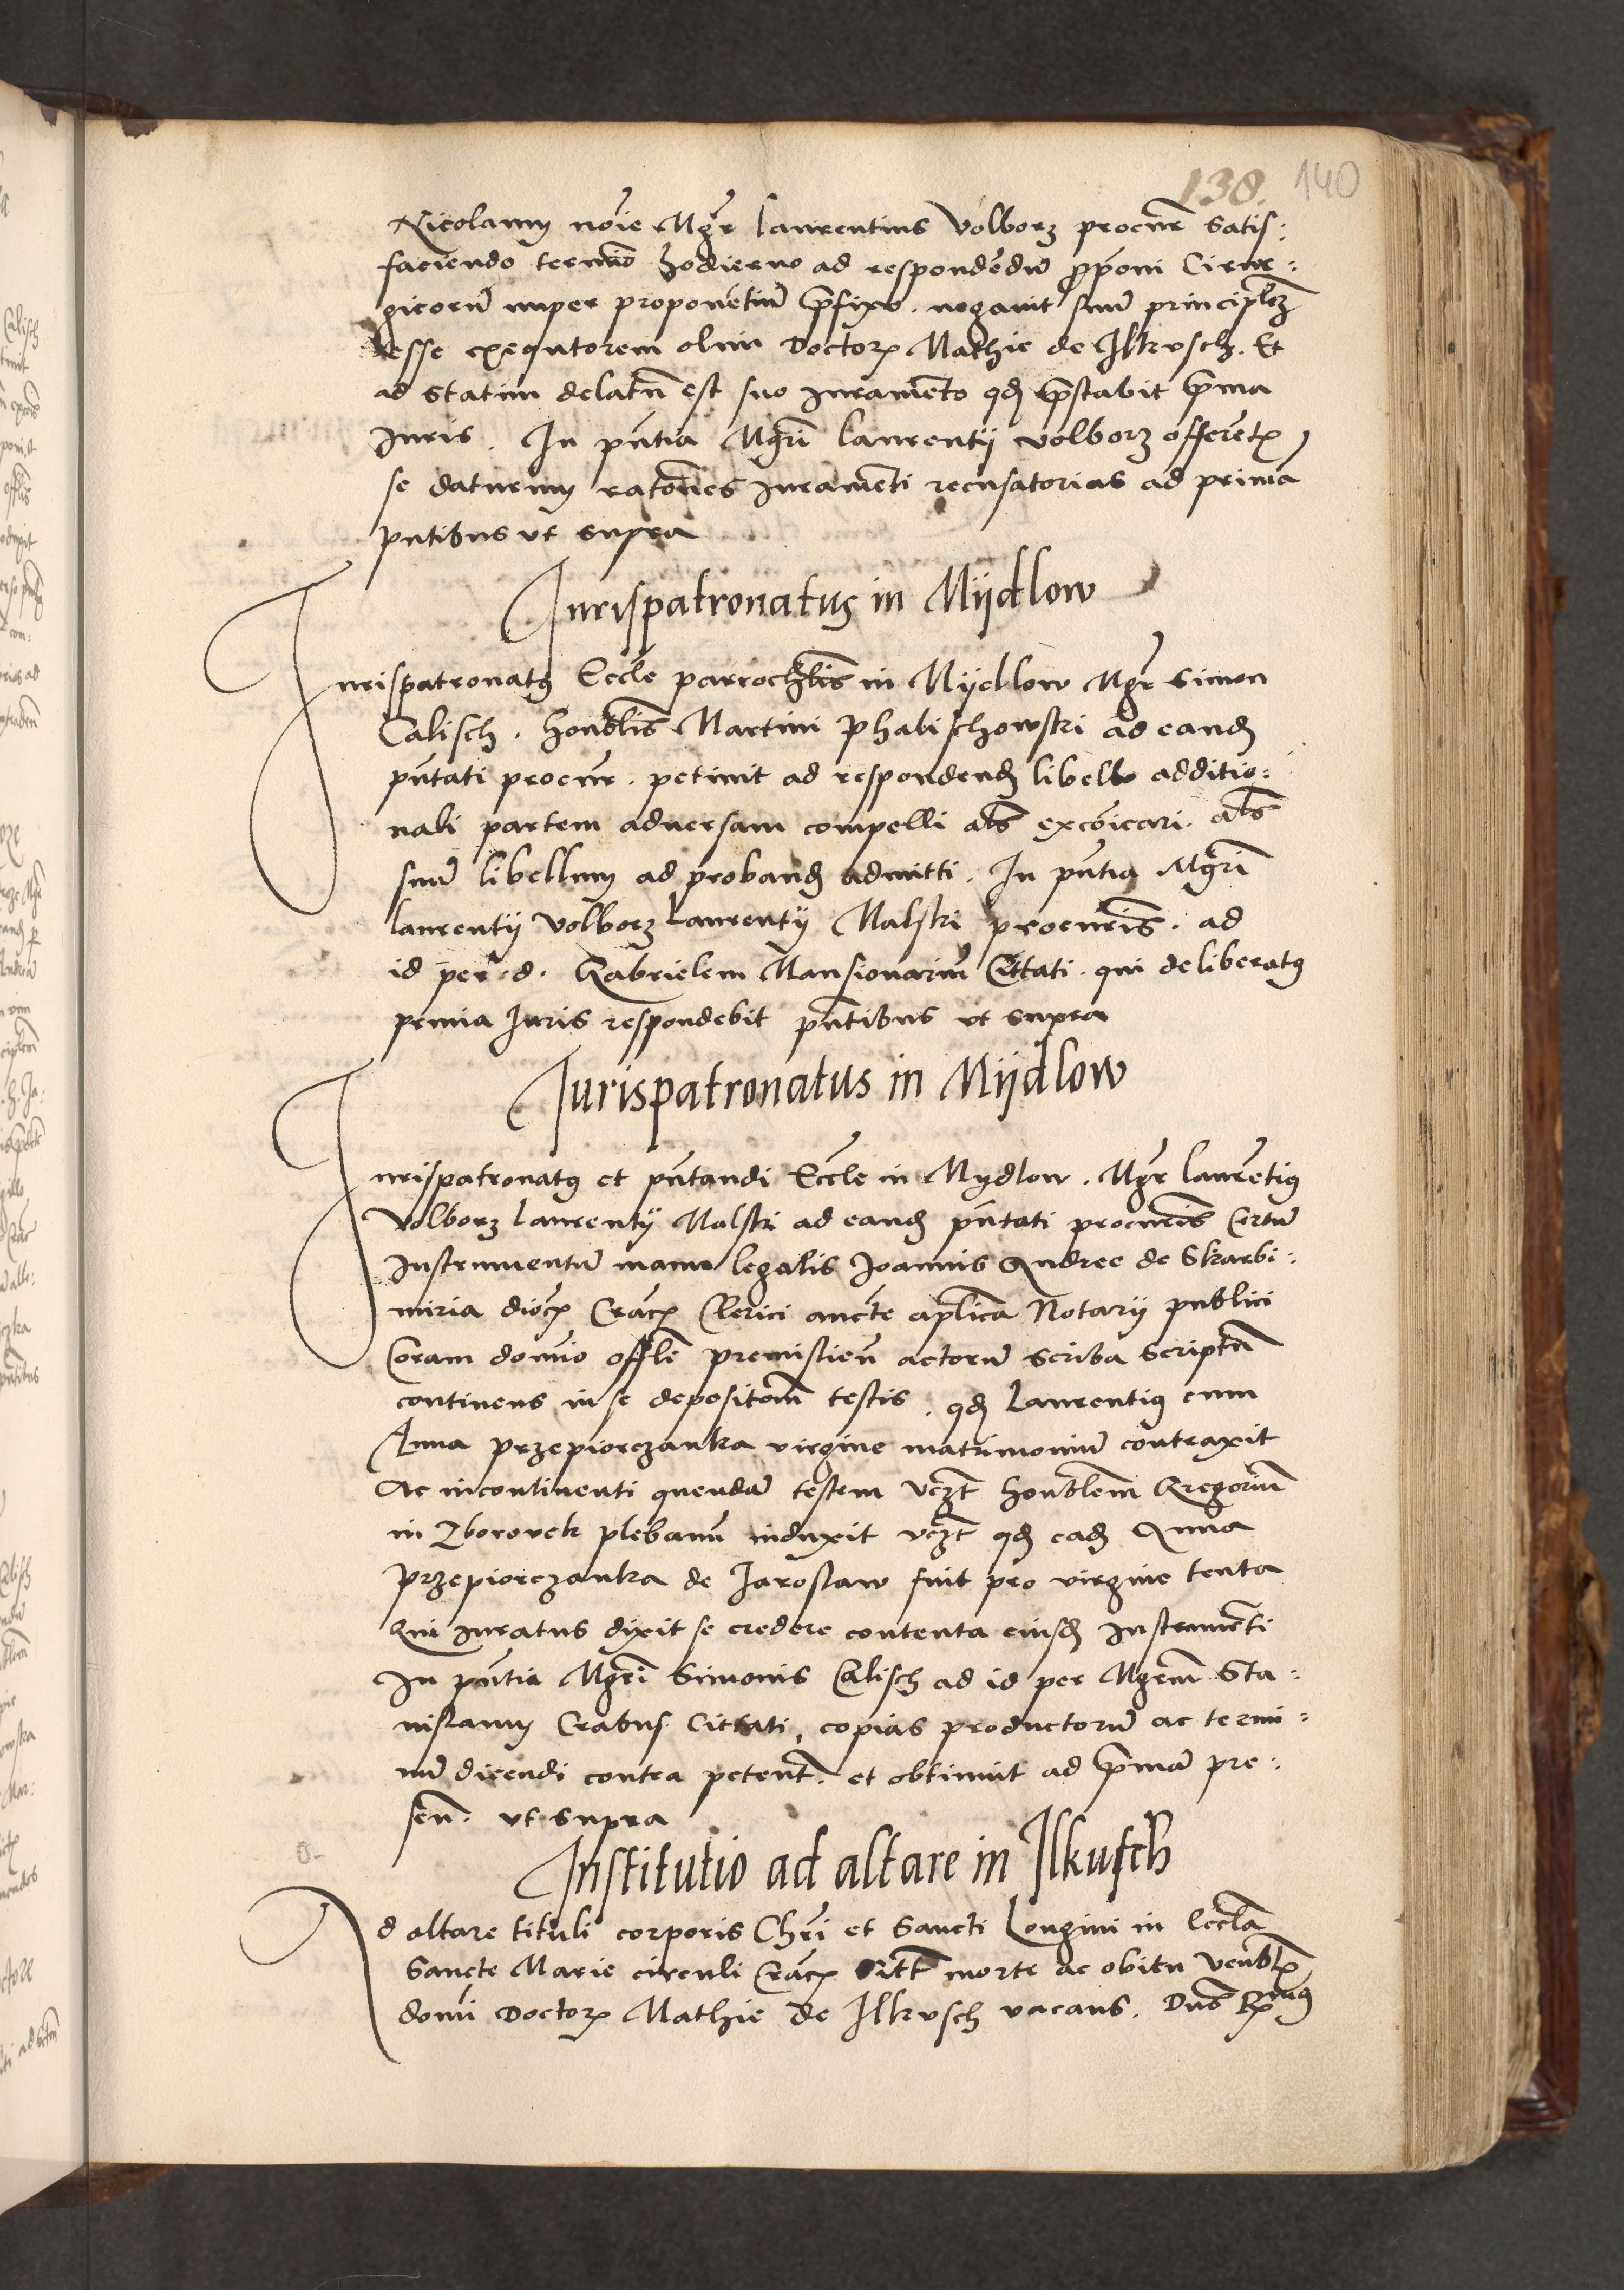 138. 140
Nicolaum noīe Mgr̄ Laurentius Volborz procur̄ satis:
faciendo termīo hodierno ad respondēdū ꝓponi Cirur:
gicorū nuper proponētiū p̄fixo. negavit suū principlēz
esse exequtorem olim Doctorꝭ Mathie de Ilkusch. Et
ad statim delatū est suo Iuramēto qđ p̄stabit p̄ma
Iuris. In pn̄tia Mgrī Laurentij Volborz offerētꝭ
se daturum ratōnes Iuramēti recusatorias ad prima
pn̄tibus ut supra
Jurispatronatus in Mijdlow
Jurispatronatꝰ Eccle parrochlis in Mijdlow Mgr̄ Simon
Calisch. Honblis Martini Phabischowski ad eandē
pn̄tati procur̄. petivit ad respondendū libello additio:
nali partem adversam compelli als excōicari. als
suū libellum ad probandū admitti. In pn̄tia Mgrī
Laurentij Volborz Laurentij Malski procurīs. ad
id per d. Gabrielem Mansionariū Cittati. qui deliberatꝰ
prima Iuris respondebit pn̄tibus ut supra
Jurispatronatus in Mijdlow
Jurispatronatꝰ et pn̄tandi Eccle in Mydlow. Mgr̄ Laurētiꝰ
Volborz Laurentij Malski ad eandē pn̄tati procurīs Certū
Instrumentū manu legalis Joannis Andree de Skarbi:
miria diocꝭ Cracꝭ Clerici aucte aplica Notarij publici
Coram domīo offlī premislien̄ actorū scriba scriptū
continens in se depositōm testis. qđ Laurentiꝰ cum
Anna Przepiorczanka virgine matrimoniū cōtraxit
Ac incontinenti quendā testem vczt honblem Gregoriū
in Zborovek plebanū induxit vczt qđ eadē Anna
Przepiorczanka de Jaroslaw fuit pro virgine tenta
Qui Iuratus dixit se credere contenta eiusdē Instrumēti
In pn̄tia Mgrī Simonis Calisch ad id per Mgrm̄ Sta:
nislaum Crabus. Cittati, copias productorū ac termi:
nū dicendi contra petent. et obtinuit ad p̄mā pre:
sen̄. ut supra
Institutio ad altare in Ilkusch
Ad altare tituli corporis Chrī et Sancti Longini in Eccla
Sancte Marie circuli Cracꝭ sitū morte ac obitu Venblꝭ
domī Doctorꝭ Mathie de Ilkusch vacans. Dns Rmꝰ